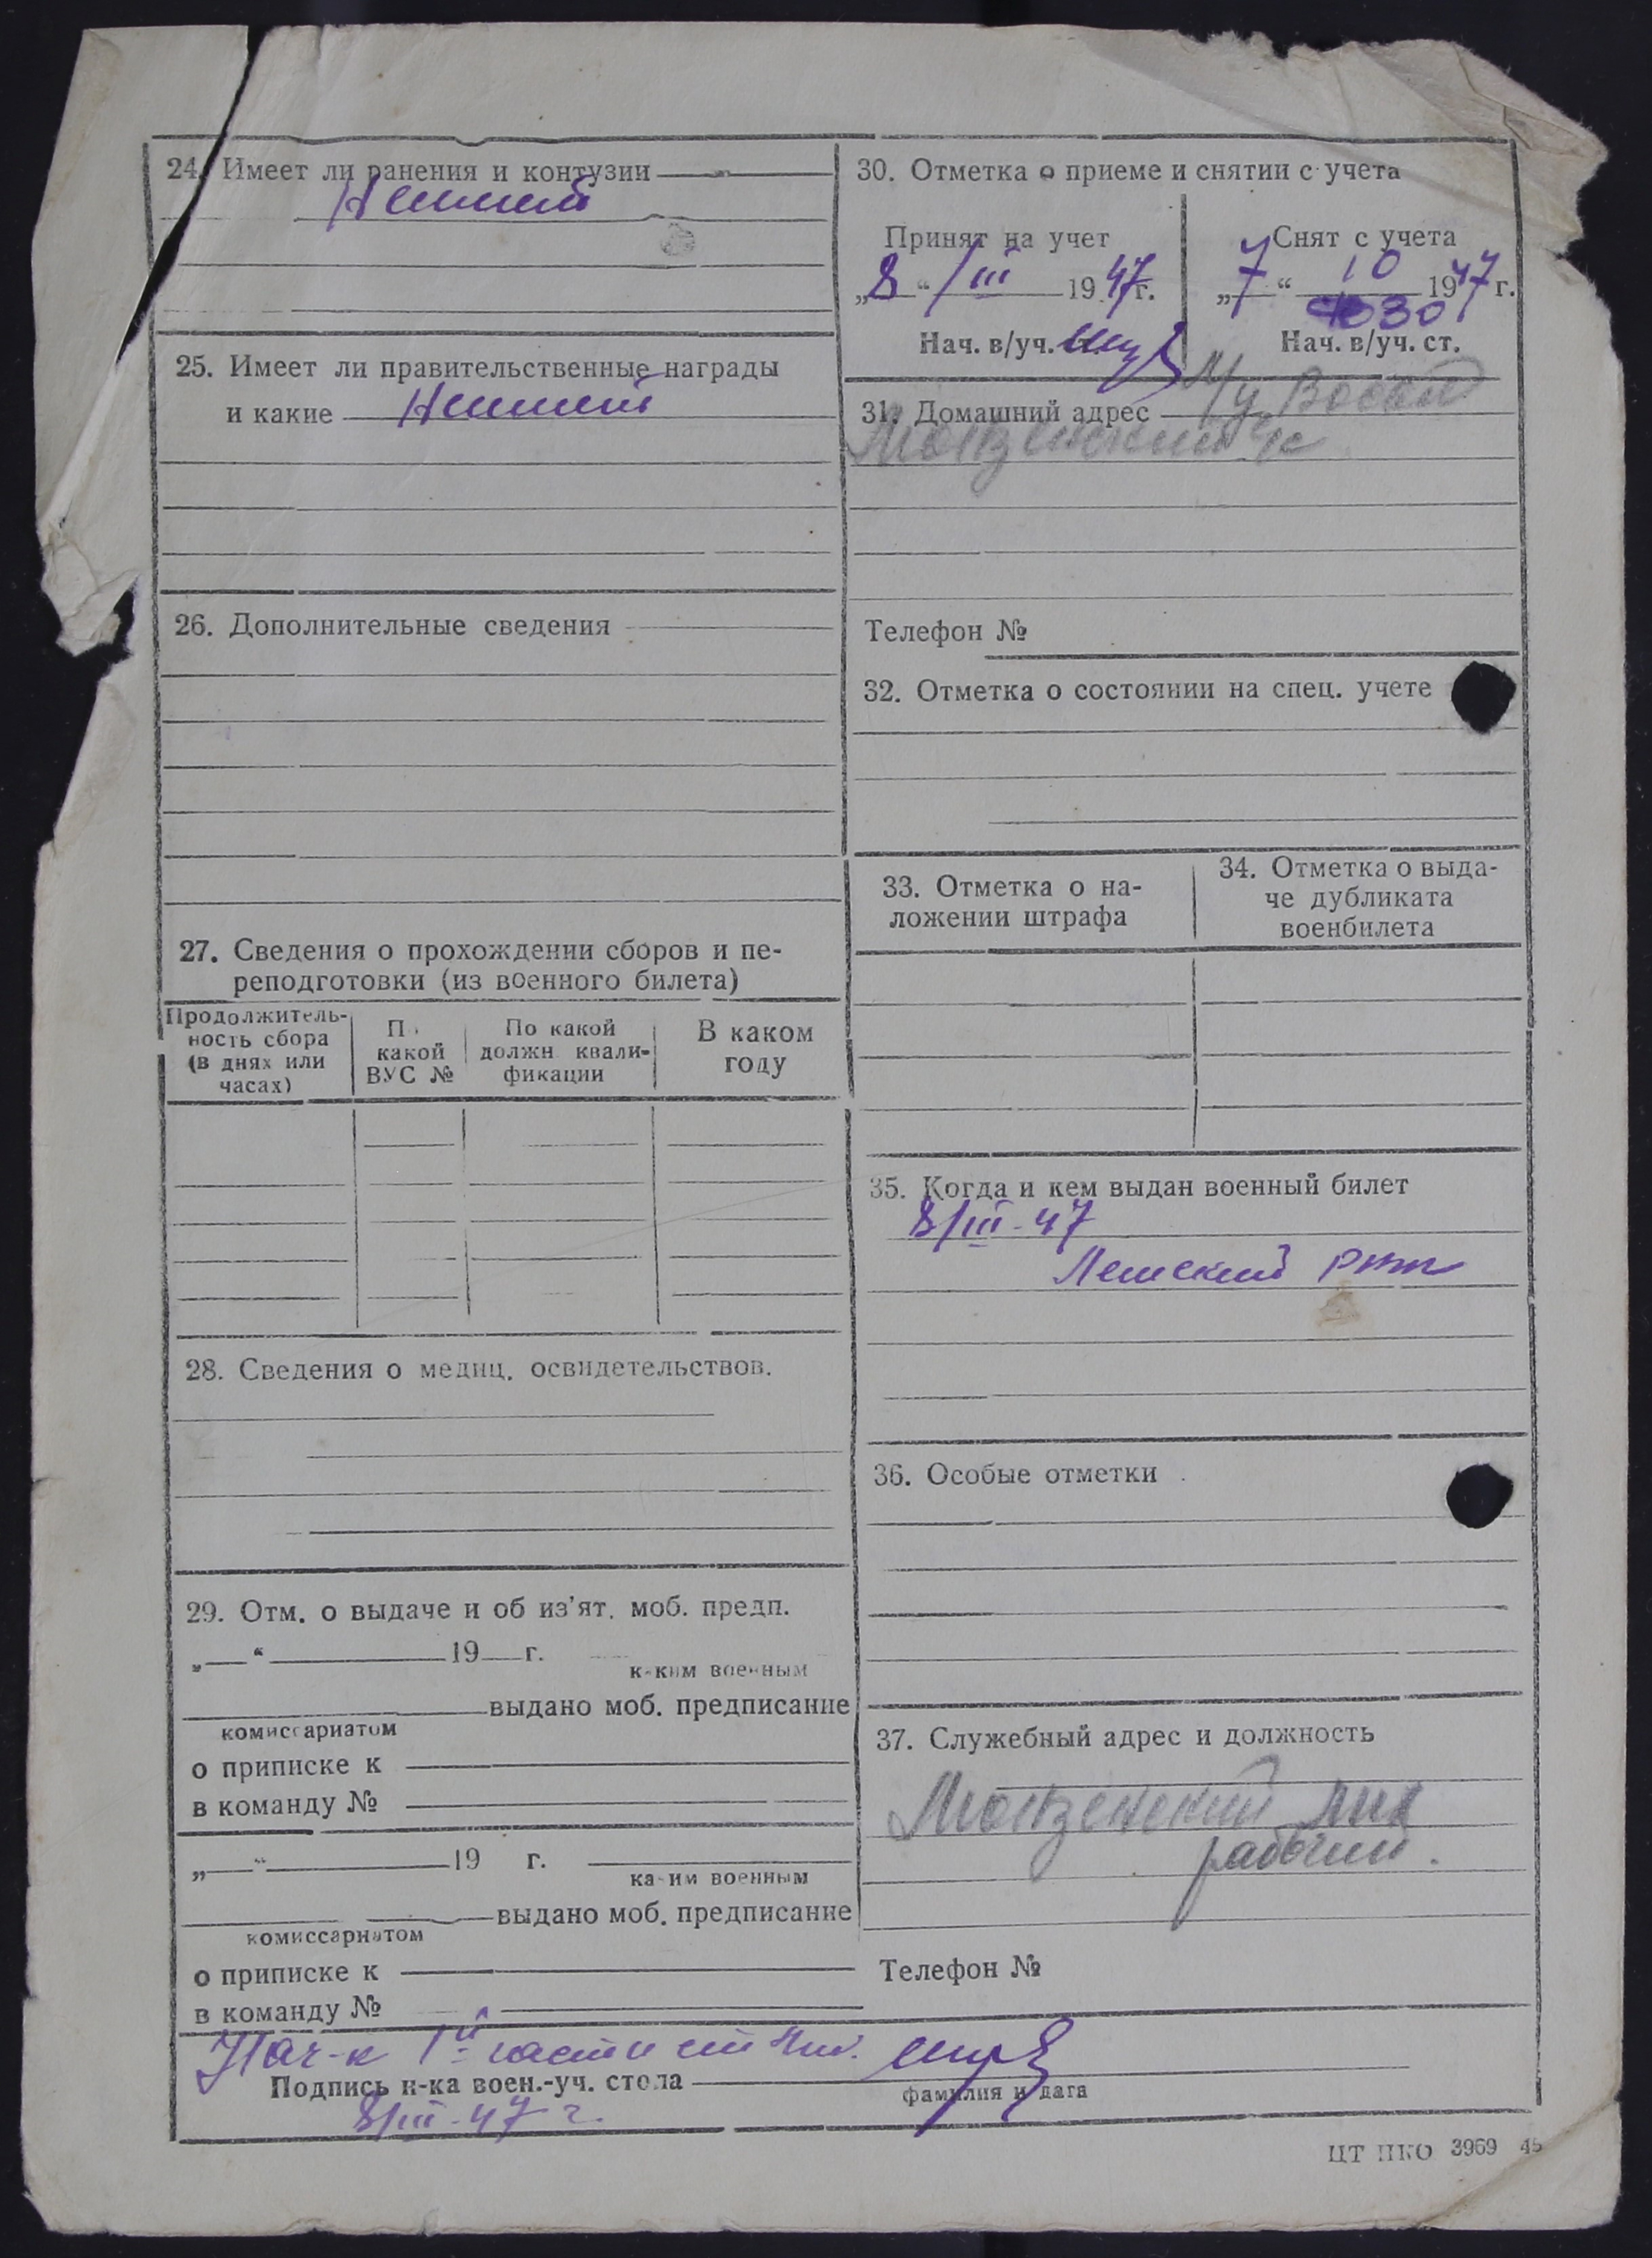 24. Имеет ли ранения и контузии
Не имеет
25. Имеет ли правительственные награды
и какие Не имеет
26. Дополнительные сведения
27. Сведения о прохождении сборов и пе-
реподготовки (из военного билета)
Продолжитель-
ность сбора
(в днях или
часах)
По
какой
ВУС №
По какой
должн. квали-
фикации
В каком
году
28. Сведения о медиц. освидетельствов.
29. Отм. о выдаче и об из'ят. моб. предп.
„ “ 19 г.
каким военным
выдано моб. предписание
комиссариатом
о приписке к
в команду №
„ “ 19 г.
каким военным
выдано моб. предписание
комиссариатом
о приписке к
в команду №
30. Отметка о приеме и снятии с учета
Принят на учет
„8“ III 1947г.
Нач. в/уч.
Снят с учета
„7“ 10 1947г.
Нач. в/уч. ст.
31. Домашний адрес
Телефон №
32. Отметка о состоянии на спец. учете
33. Отметка о на-
ложении штрафа
34. Отметка о выда-
че дубликата
военбилета
35. Когда и кем выдан военный билет
8/III-47
36. Особые отметки
37. Служебный адрес и должность
рабочий.
Телефон №
Нач-к 1й части
Подпись н-ка воен.-уч. стола
фамилия и дата
8/III-47 г.
ЦТ ПКО 3969 45